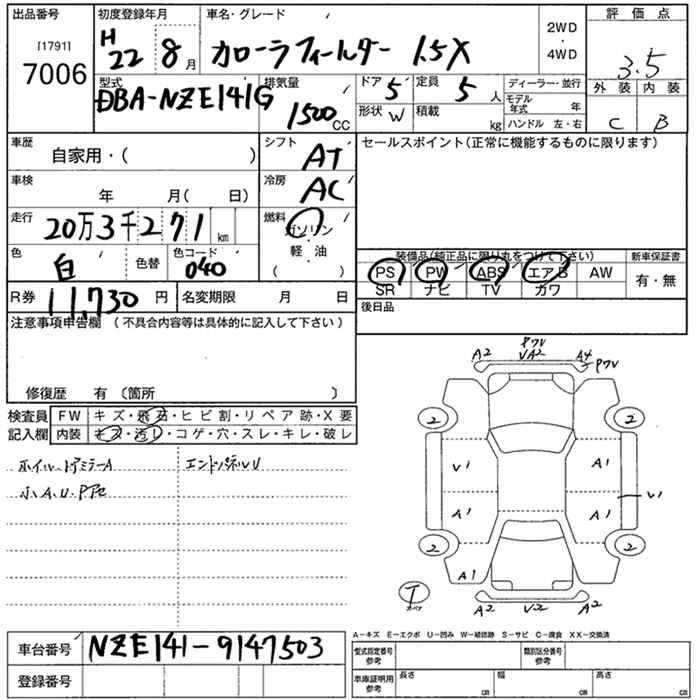 出品番号 初度登録年月 車名・グレード 評価点
[1791] 7006
H22年 8月 カローラフィールダー 1.5X
2WD・4WD
3.5
型式 排気量 ドア 定員 ディーラー・並行 外装 内装
DBA-NZE141G 1500CC 5 5人
モデル年式 年
形状 W 積載 kg ハンドル 左・右 C B
車歴 シフト セールスポイント(正常に機能するものに限ります)
自家用・( ) AT
車検 冷房
年 月( 日) AC
走行 燃料
20万3千271km ガソリン・軽油 ( )
色 色替 色コード
白 040
装備品(純正品に限り丸をつけて下さい) 新車保証書
PS PW ABS エアB AW 有・無
SR ナビ TV カワ
R券 11,730円 名変期限 月 日
後日品
注意事項申告欄 (不具合内容等は具体的に記入して下さい)
修復歴 有 〔箇所 〕
検査員記入欄 FW キズ・飛石・ヒビ割・リペア跡・X要
内装 キズ・汚レ・コゲ・穴・スレ・キレ・破レ
A2 V2 A4
2 2
V1 A1
V1
A1 A1
2 2
A1
T
A2 V2 A2
A-キズ E-エクボ U-凹み W-補修跡 S-サビ C-腐食 XX-交換済
車台番号 NZE141-9147503
登録番号
型式指定番号参考 類別区分番号参考
車庫証明用参考 長さ cm 幅 cm 高さ cm